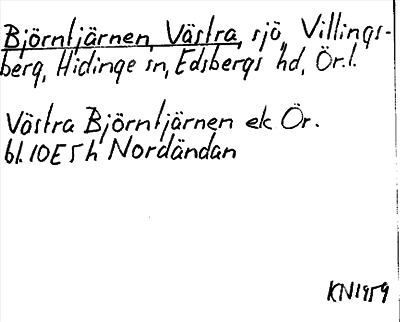 Björntjärnen, Västra, sjö, Villings-
berg, Hidinge sn, Edsbergs hd, Ör.l.
Västra Björntjärnen ek Ör.
bl. 10E5h Nordändan
KN1959